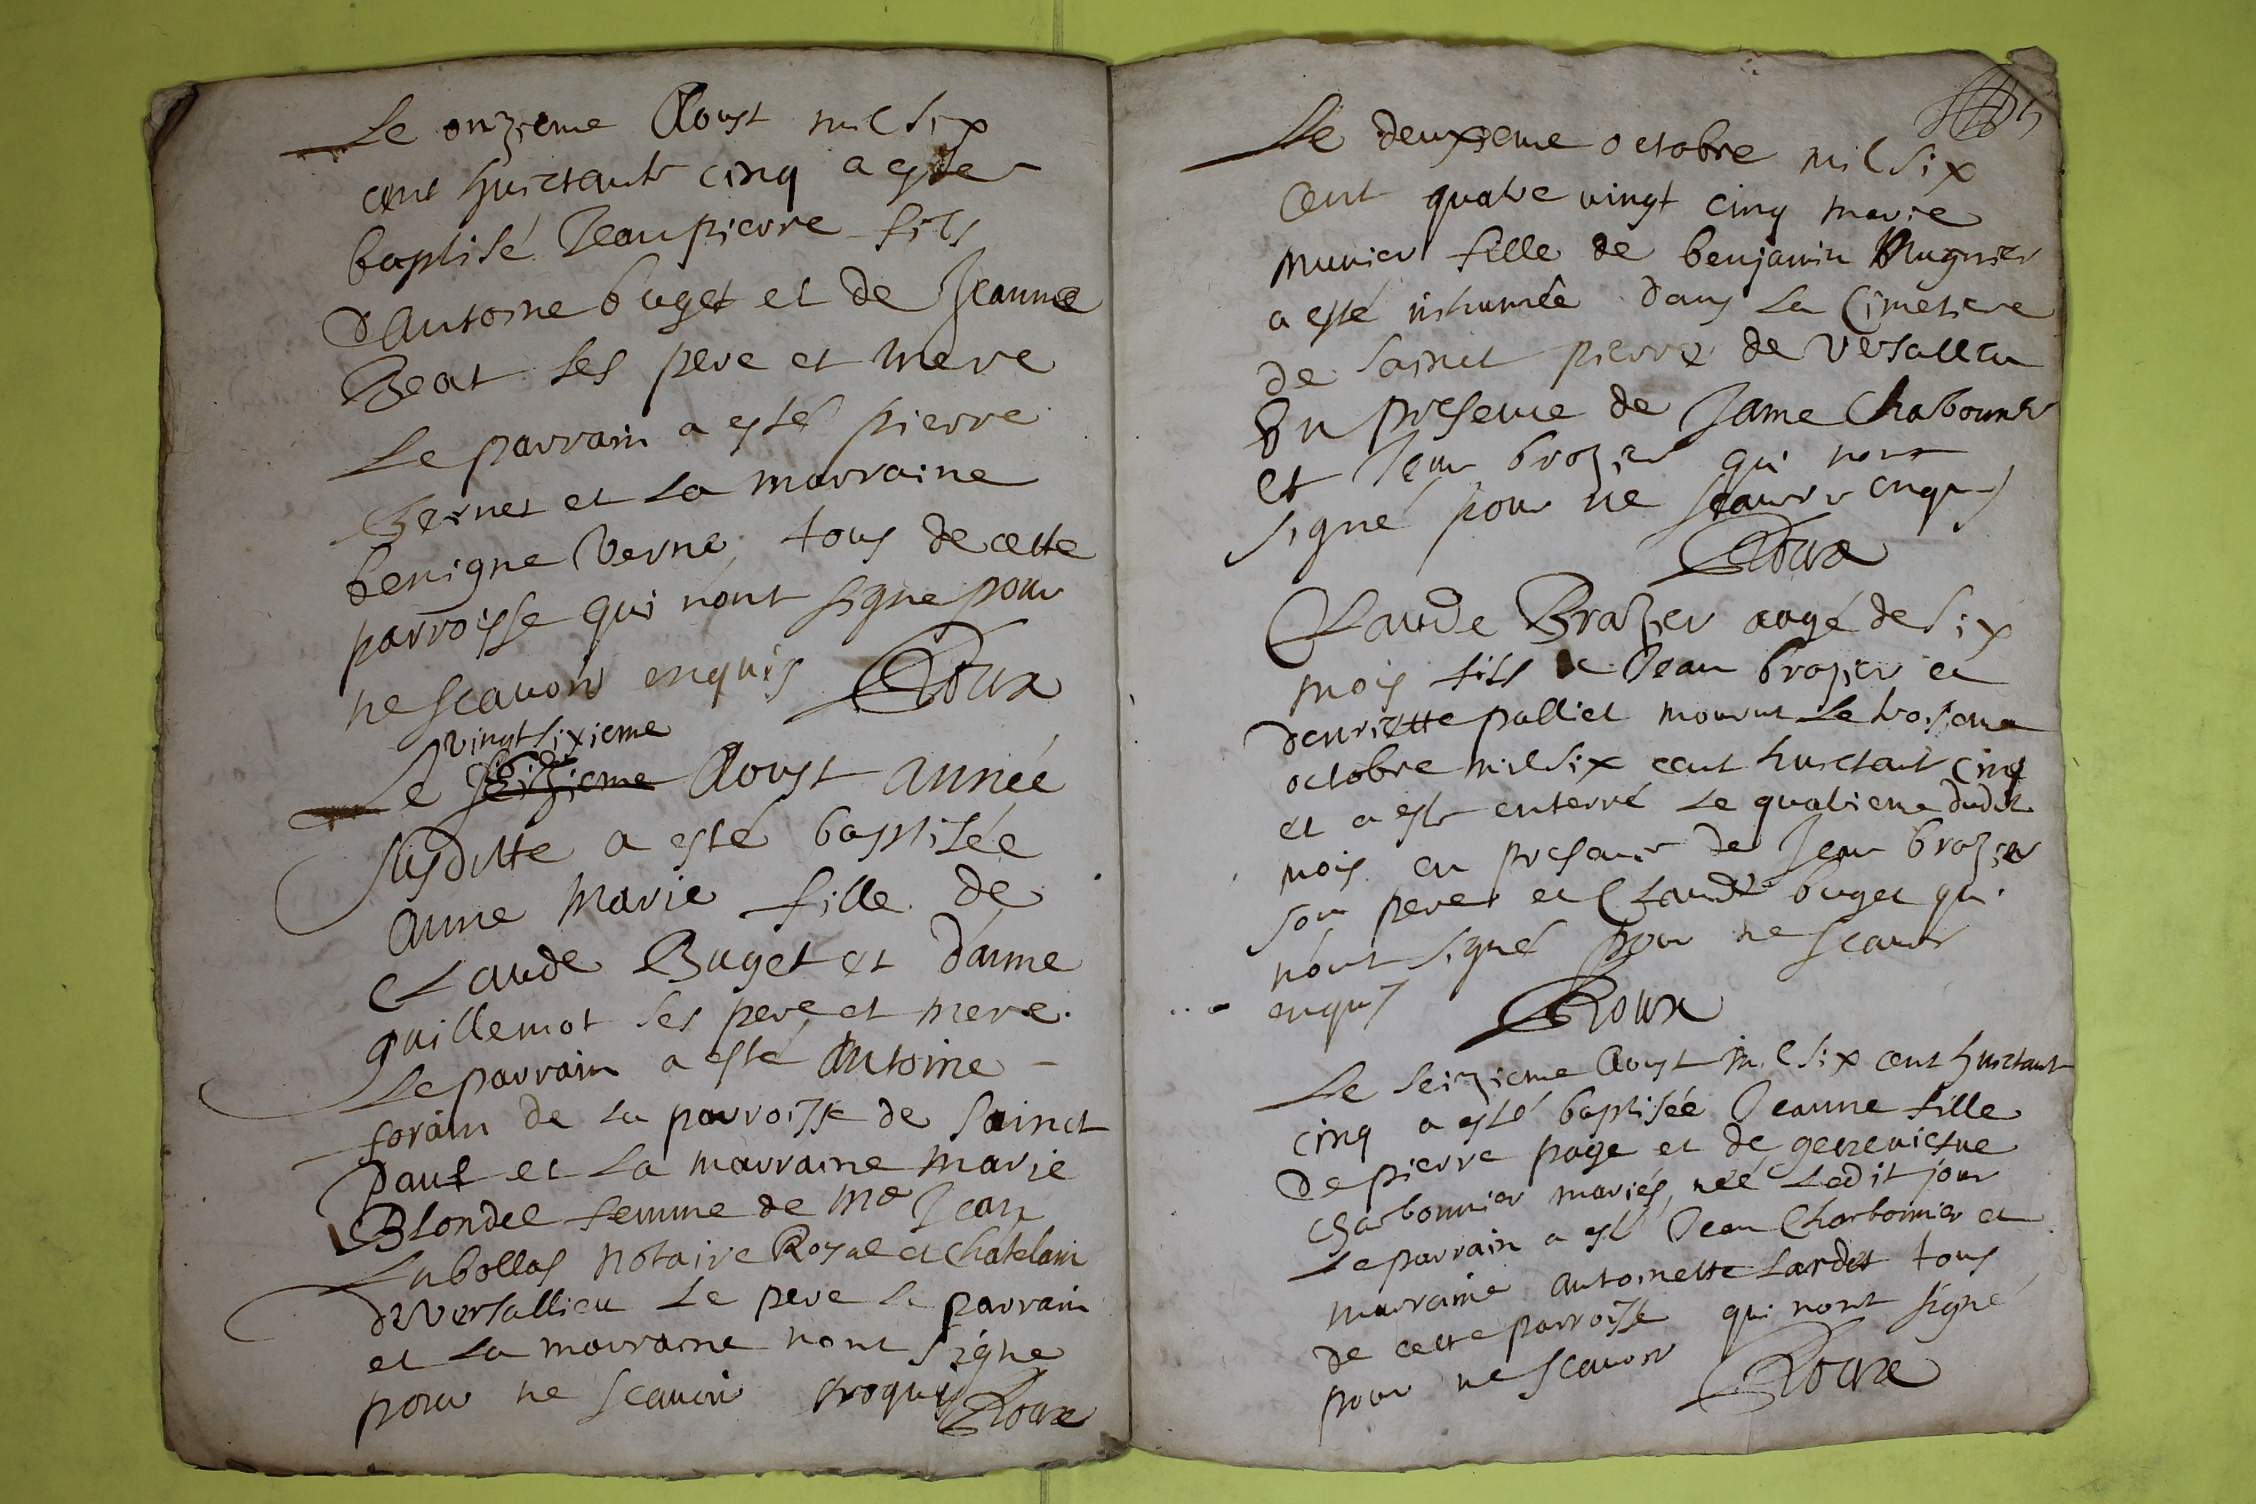 Le onzieme Aoust mil six
cent huictante cinq a esté
baptisé Jean pierre fils
d'Antoine buget et de Jeanne
Beat ses pere et mere
Le parrain a esté pierre
et la marraine
benigne Verne, tous de cette
parroisse qui n'ont signe pour
ne scavoir enquis Roux
vingt sixieme
Le seizieme Aoust année
susditte a esté baptisée
anne Marie fille de
Claude Buget et d'aime
guillemot ses pere et mere.
Le parrain a esté Antoine -
forain de la parroisse de Sainct
Paul et la marraine marie
Blondel femme de Me Jean
Labollas notaire Royal et Châtelain
de Versallieu Le pere le parrain
et la marraine n'ont signe
pour ne scavoir Roux
Le deuxieme octobre mil six
cent quatre vingt cinq marie
munier fille de benjamin Mugnier
a esté inhumée dans la Cimetiere
de sainct pierre de Versallieu
En presence de Jame Chabounier
et Jean brozier qui n'ont
signé pour ne scavoir enquis
Roux
Claude Brazier aagé de six
mois fils de Jean brozier et
d'enriette palliet mourut Le troisieme
octobre mil six cent huictant cinq
et a esté enterré Le quatrieme dudit
mois en presence de Jean brozier
son pere et Claude buget qui
n'ont signé pour ne scavoir
enquis Roux
Le seizieme Aoust mil six cent huictant
cinq a esté baptisée Jeanne fille
de pierre page et de genevieve
Charbonnier mariés, née Ledit jour
Le parrain a esté Jean Charbonnier et
marraine antoinette Lardet tous
de cette parroisse qui n'ont signé
pour ne scavoir Roux